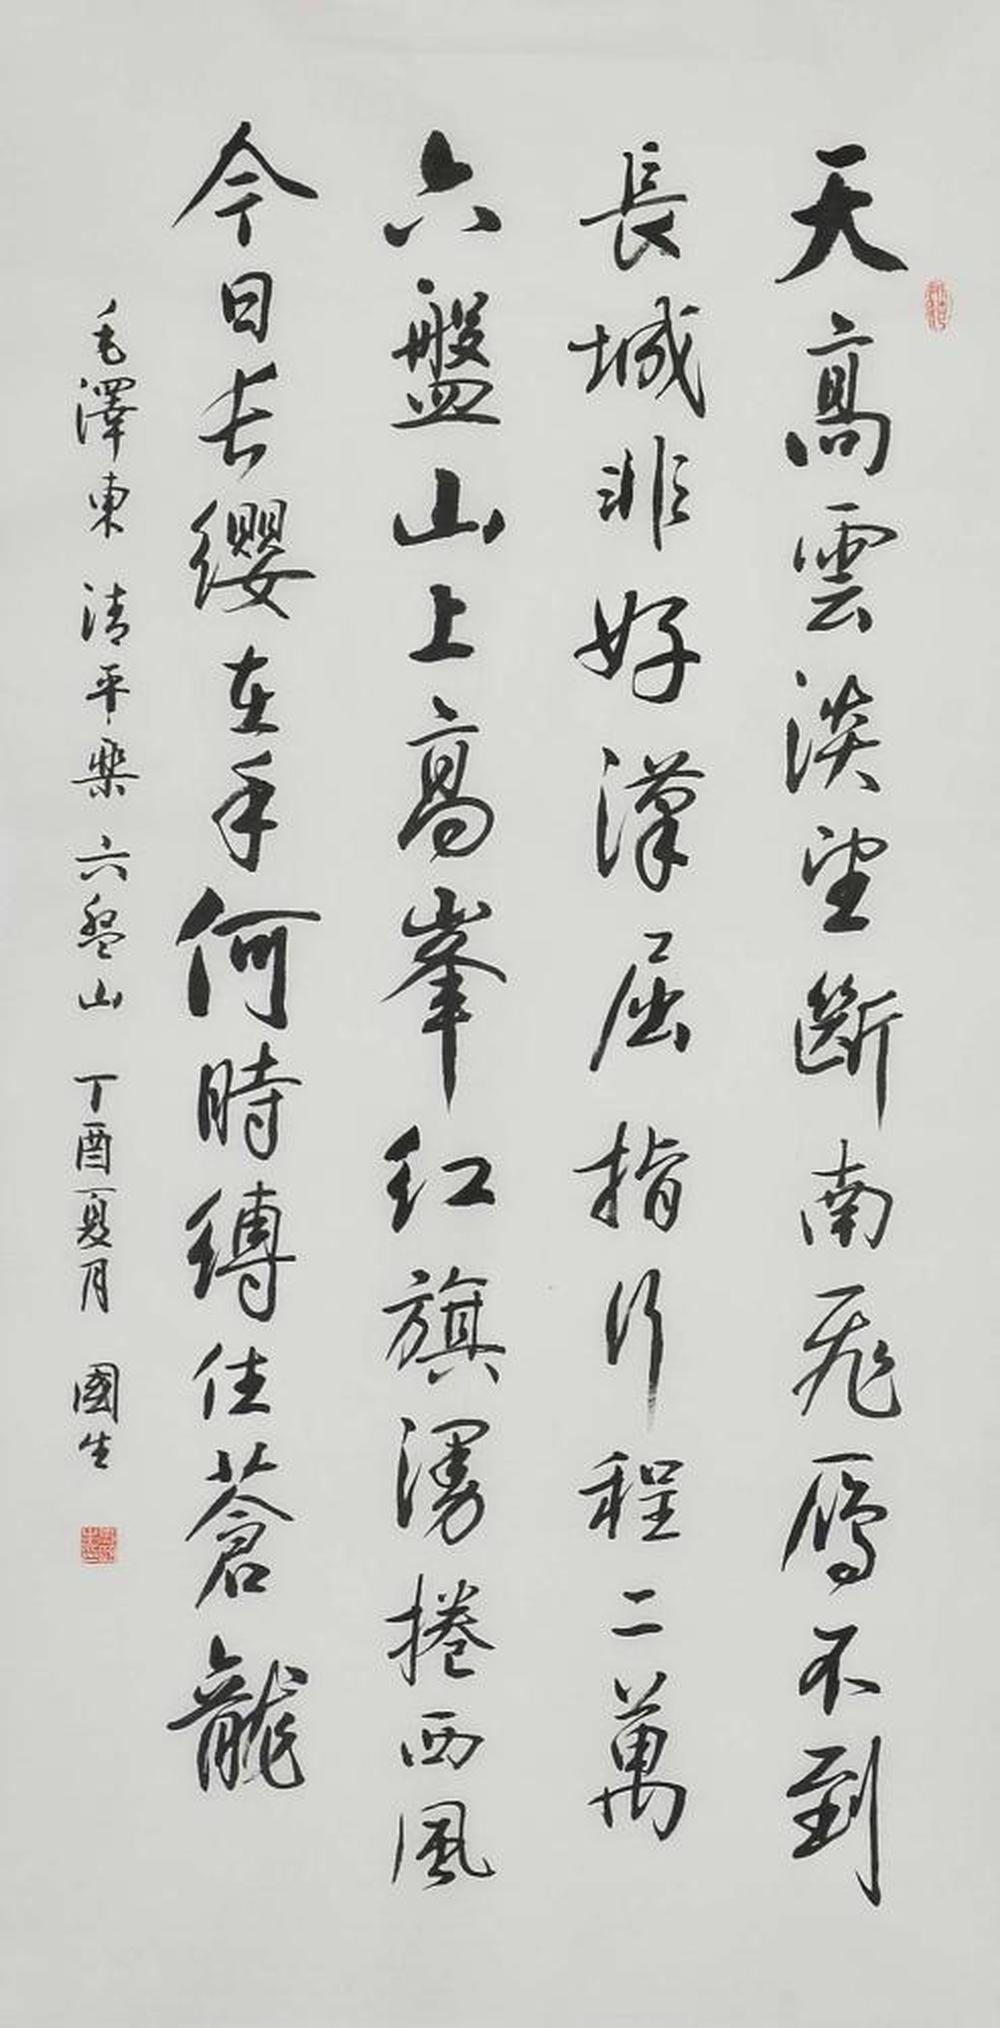 天高雲淡望斷南飛雁不到
長城非好漢屈指行程二萬
六盤山上高峯红旗漫捲西風
今日长缨在手何時縛住蒼龍
毛澤東 清平樂 六盤山 丁酉夏月 國生